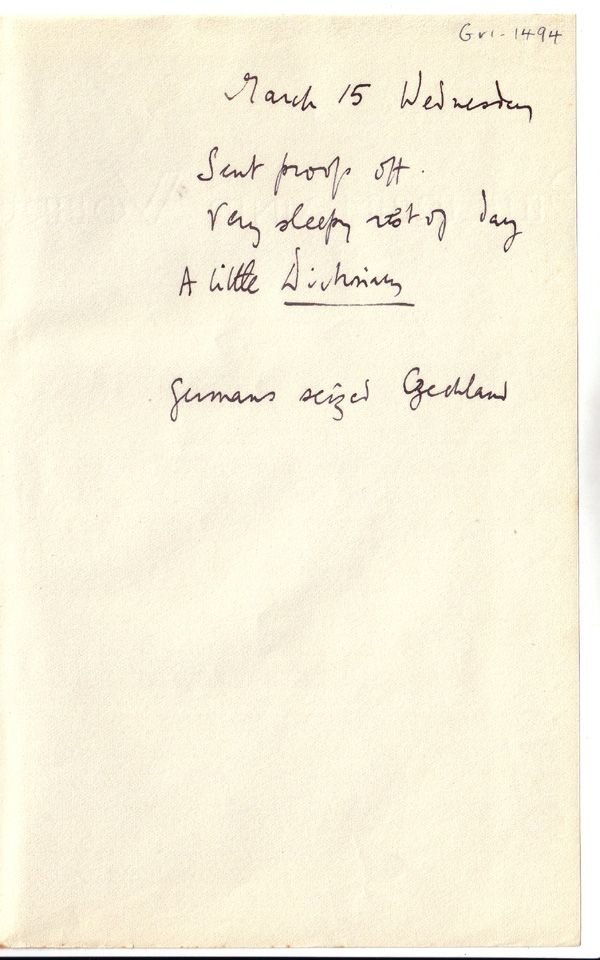 Gvi-1494
March 15 Wednesday
Sent proofs off.
Very sleepy rest of day
A little Dictionary
Germans seized Czechland